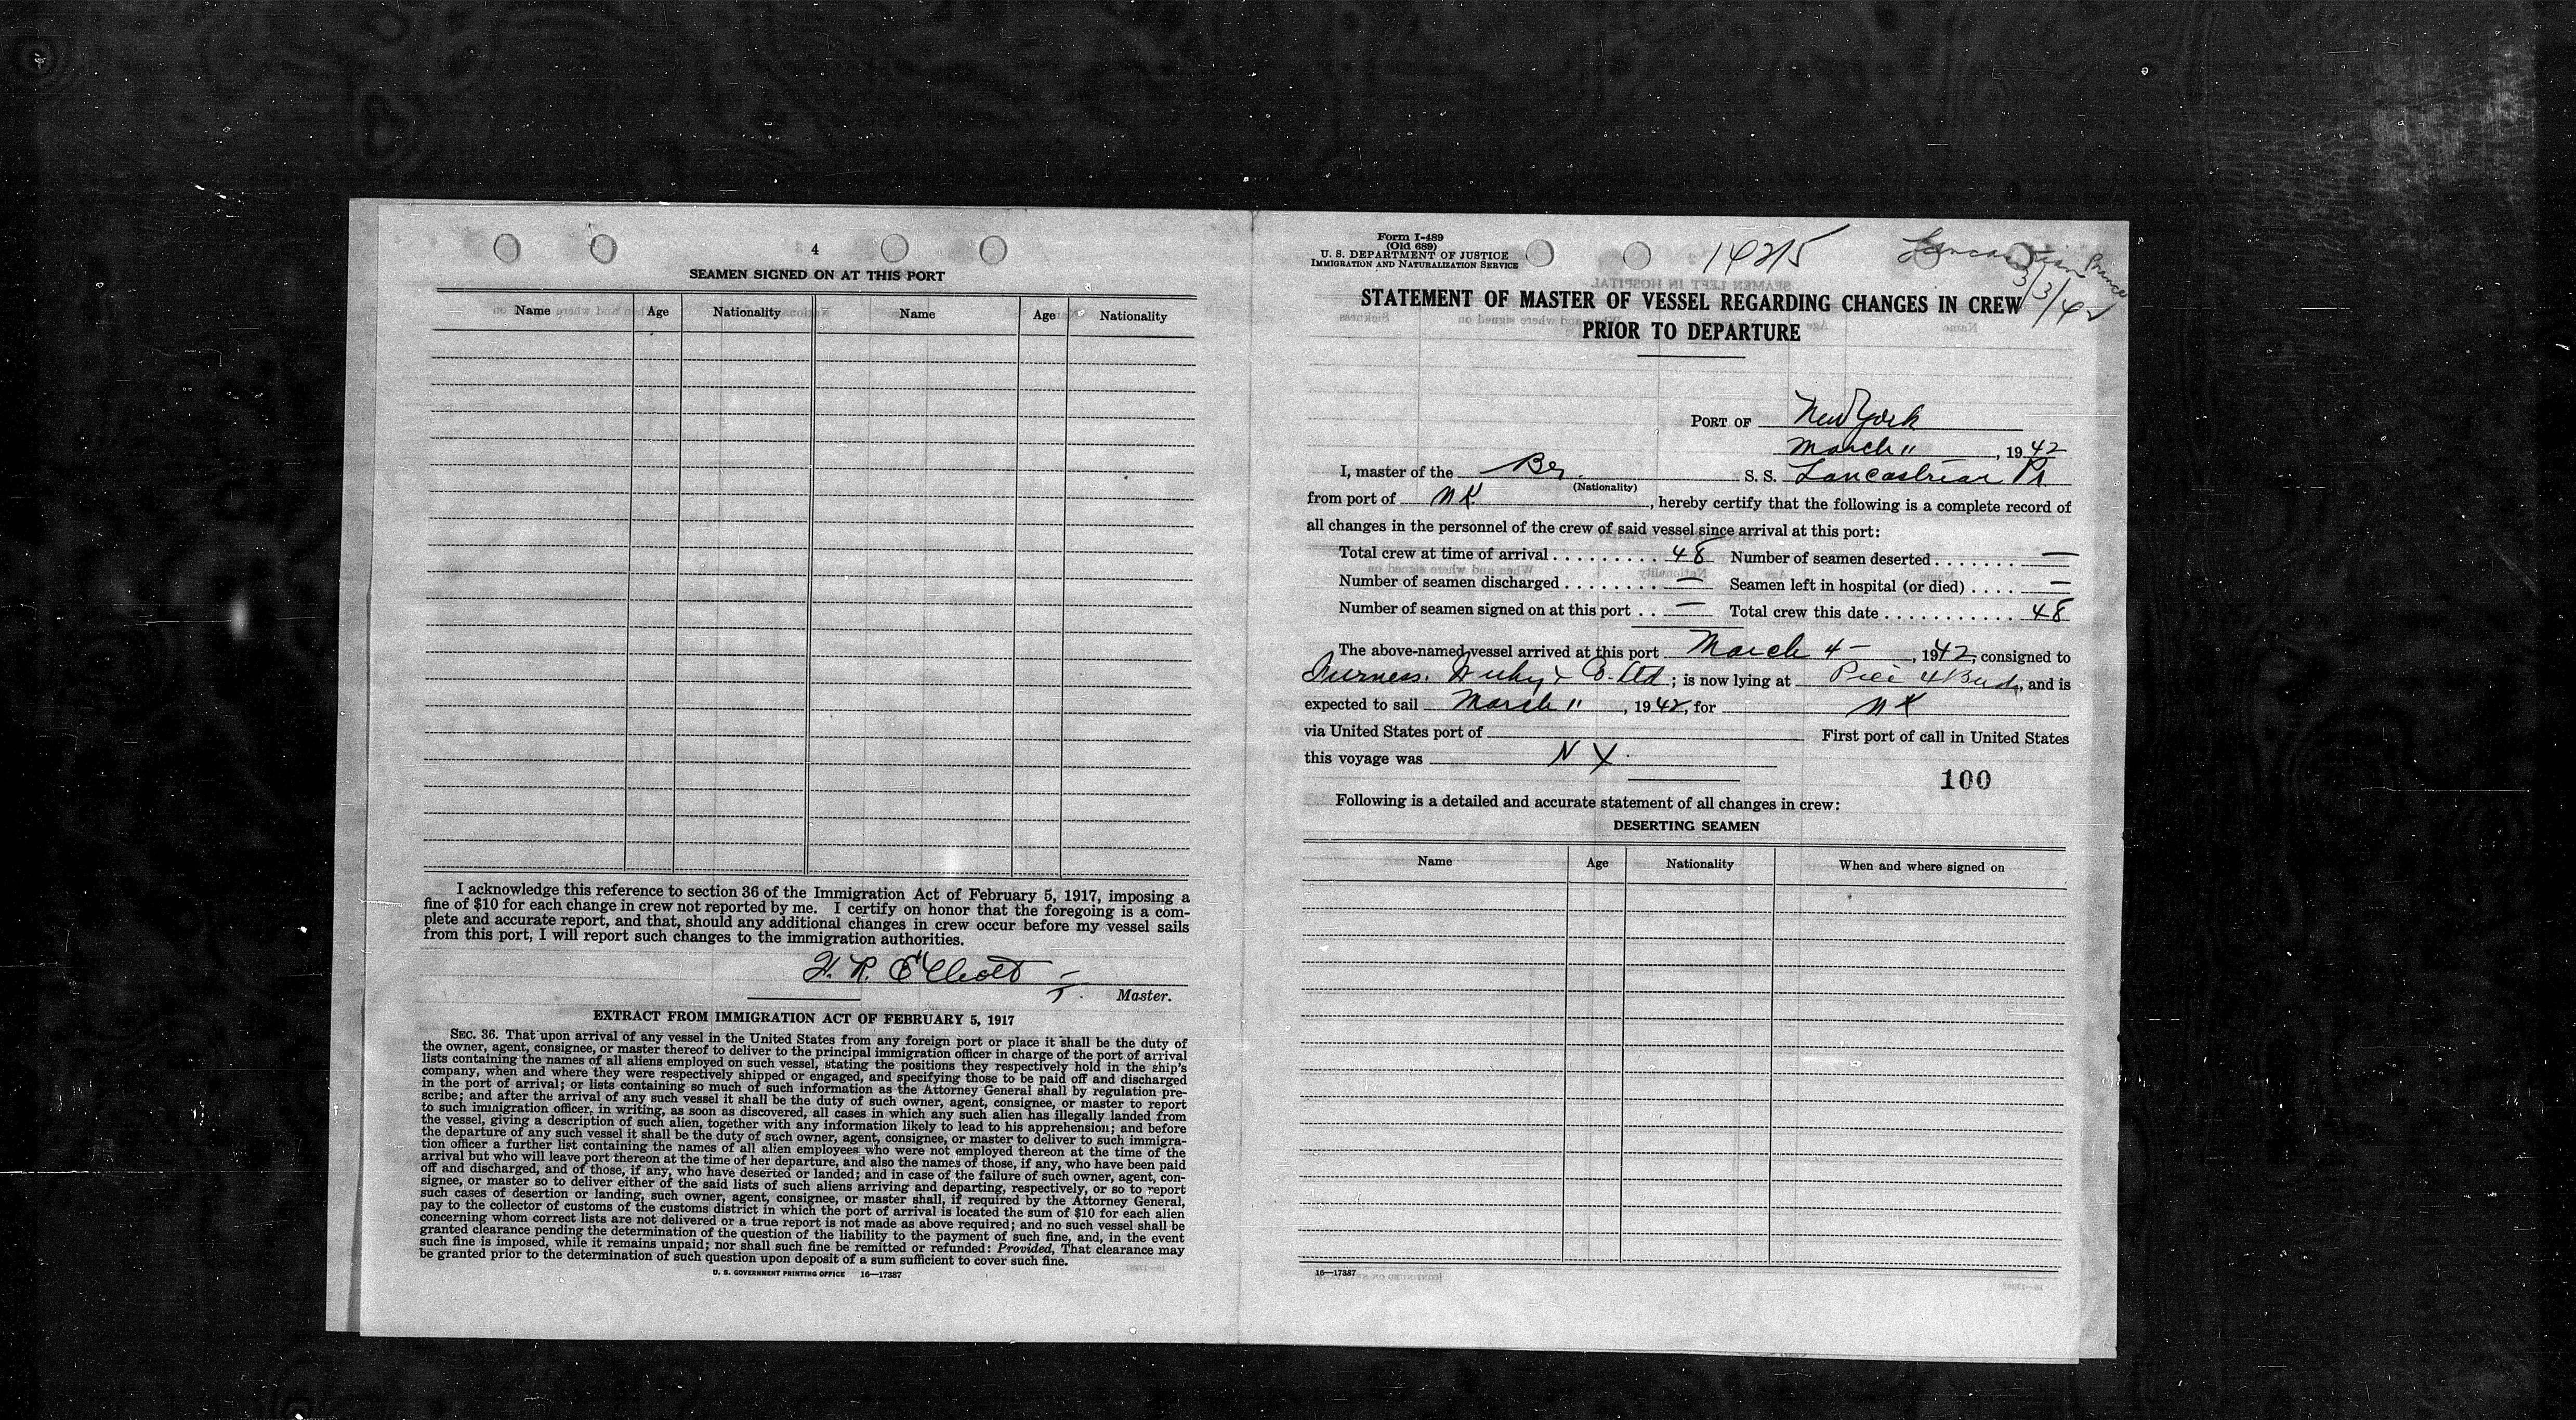 4
SEAMEN SIGNED ON AT THIS PORT
Name Age Nationality Name Age Nationality
I acknowledge this reference to section 36 of the Immigration Act of February 5, 1917, imposing a
fine of $10 for each change in crew not reported by me. I certify on honor that the foregoing is a com-
plete and accurate report, and that, should any additional changes in crew occur before my vessel sails
from this port, I will report such changes to the immigration authorities.
Master.
EXTRACT FROM IMMIGRATION ACT OF FEBRUARY 5, 1917
SEC. 36. That upon arrival of any vessel in the United States from any foreign port or place it shall be the duty of
the owner, agent, consignee, or master thereof to deliver to the principal immigration officer in charge of the port of arrival
lists containing the names of all aliens employed on such vessel, stating the positions they respectively hold in the ship's
company, when and where they were respectively shipped or engaged, and specifying those to be paid off and discharged
in the port of arrival; or lists containing so much of such information as the Attorney General shall by regulation pre-
scribe; and after the arrival of any such vessel it shall be the duty of such owner, agent, consignee, or master to report
to such immigration officer, in writing, as soon as discovered, all cases in which any such alien has illegally landed from
the vessel, giving a description of such alien, together with any information likely to lead to his apprehension; and before
the departure of any such vessel it shall be the duty of such owner, agent, consignee, or master to deliver to such immigra-
tion officer a further list containing the names of all alien employees who were not employed thereon at the time of the
arrival but who will leave port thereon at the time of her departure, and also the names of those, if any, who have been paid
off and discharged, and of those, if any, who have deserted or landed; and in case of the failure of such owner, agent, con-
signee, or master so to deliver either of the said lists of such aliens arriving and departing, respectively, or so to report
such cases of desertion or landing, such owner, agent, consignee, or master shall, if required by the Attorney General,
pay to the collector of customs of the customs district in which the port of arrival is located the sum of $10 for each alien
concerning whom correct lists are not delivered or a true report is not made as above required; and no such vessel shall be
granted clearance pending the determination of the question of the liability to the payment of such fine, and, in the event
such fine is imposed, while it remains unpaid; nor shall such fine be remitted or refunded: Provided, That clearance may
be granted prior to the determination of such question upon deposit of a sum sufficient to cover such fine.
U. S. GOVERNMENT PRINTING OFFICE 16—17387
Form I-489
(Old 689)
U. S. DEPARTMENT OF JUSTICE
IMMIGRATION AND NATURALIZATION SERVICE
14215
Lancastrian Prince
3/3/42
STATEMENT OF MASTER OF VESSEL REGARDING CHANGES IN CREW
PRIOR TO DEPARTURE
PORT OF New York
March 11, 1942
I, master of the Br. S. S. Lancastrian Pr
(Nationality)
from port of NK, hereby certify that the following is a complete record of
all changes in the personnel of the crew of said vessel since arrival at this port:
Total crew at time of arrival . . . . . . . . . . 48 Number of seamen deserted . . . . . . . . —
Number of seamen discharged . . . . . . . . — Seamen left in hospital (or died) . . . . —
Number of seamen signed on at this port . . — Total crew this date . . . . . . . . . . . 48
The above-named vessel arrived at this port March 4 -, 1942, consigned to
Furness, Withy & Co. Ltd; is now lying at Pier 4, and is
expected to sail March 11, 1942, for NK
via United States port of First port of call in United States
this voyage was NY
100
Following is a detailed and accurate statement of all changes in crew:
DESERTING SEAMEN
Name Age Nationality When and where signed on
16—17387